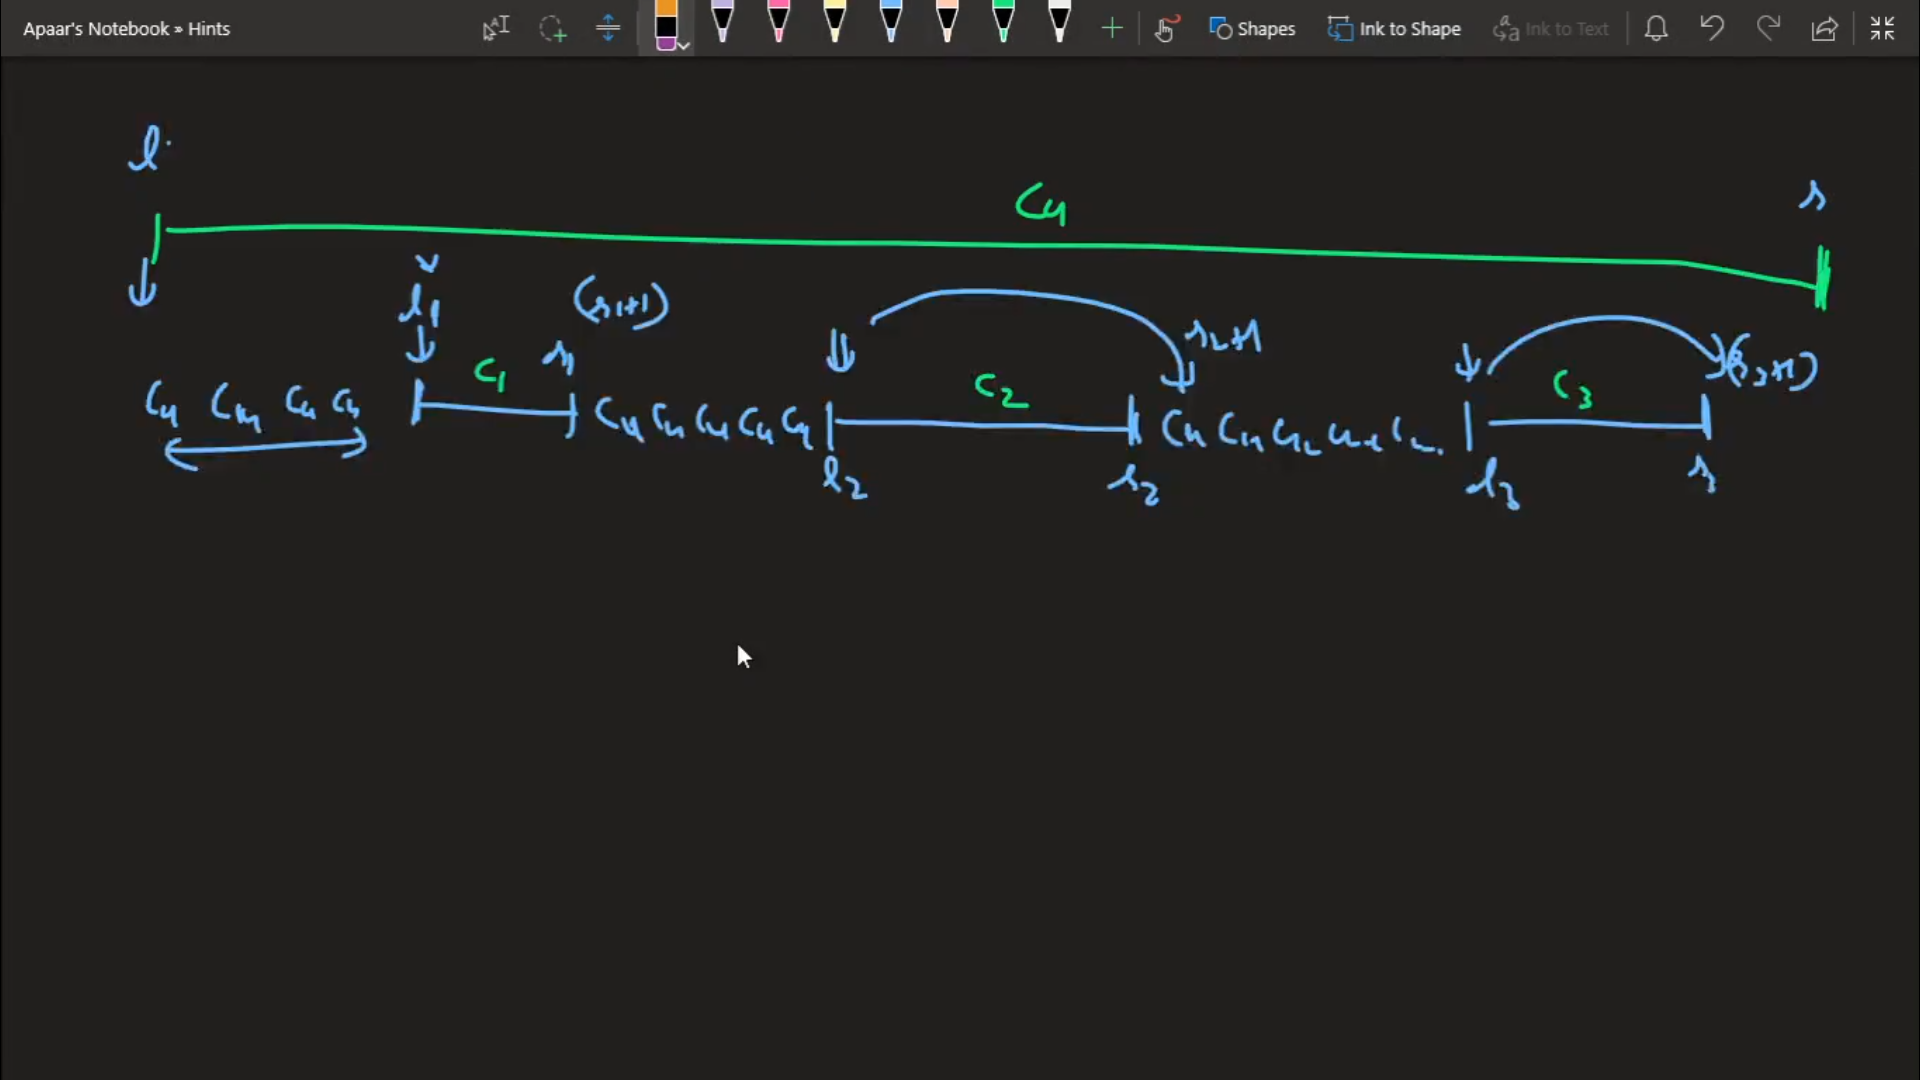 Apaar's Notebook » Hints
Shapes
Ink to Shape
Ink to Text
l
C4
r
l1
(r1+1)
r1
C1
r2+1
C2
(r3+1)
C3
C4 C4 C4 C4
C4 C4 C4 C4 C4
C4 C4 C4
l2
r2
l3
r3